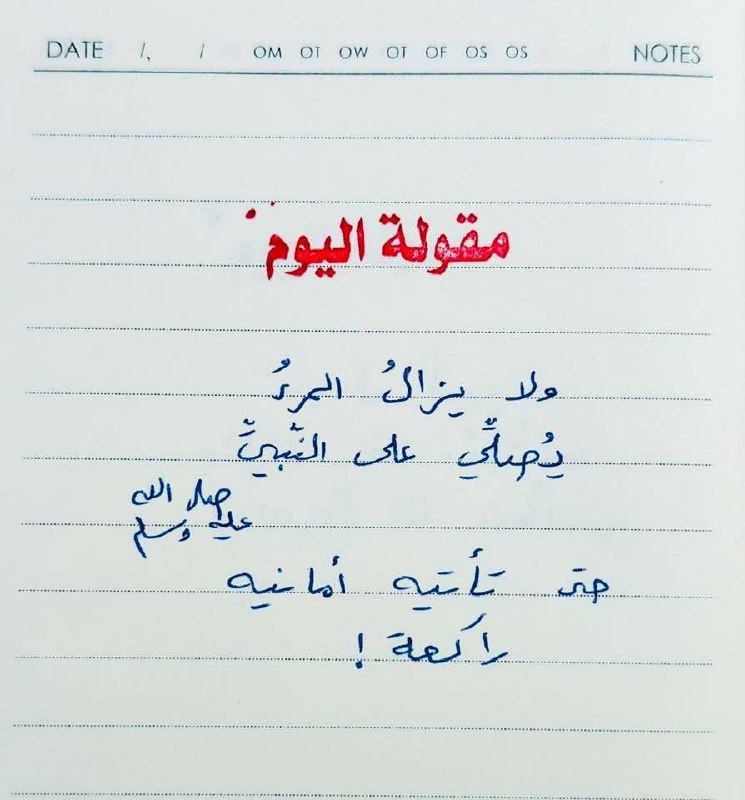 DATE / / OM OT OW OT OF OS OS NOTES
مقولة اليوم
ولا يزالُ المرءُ
يُصلّي على النّبيِّ
صلى الله
عليه وسلم
حتى تأتيه أمانيه
راكعة !